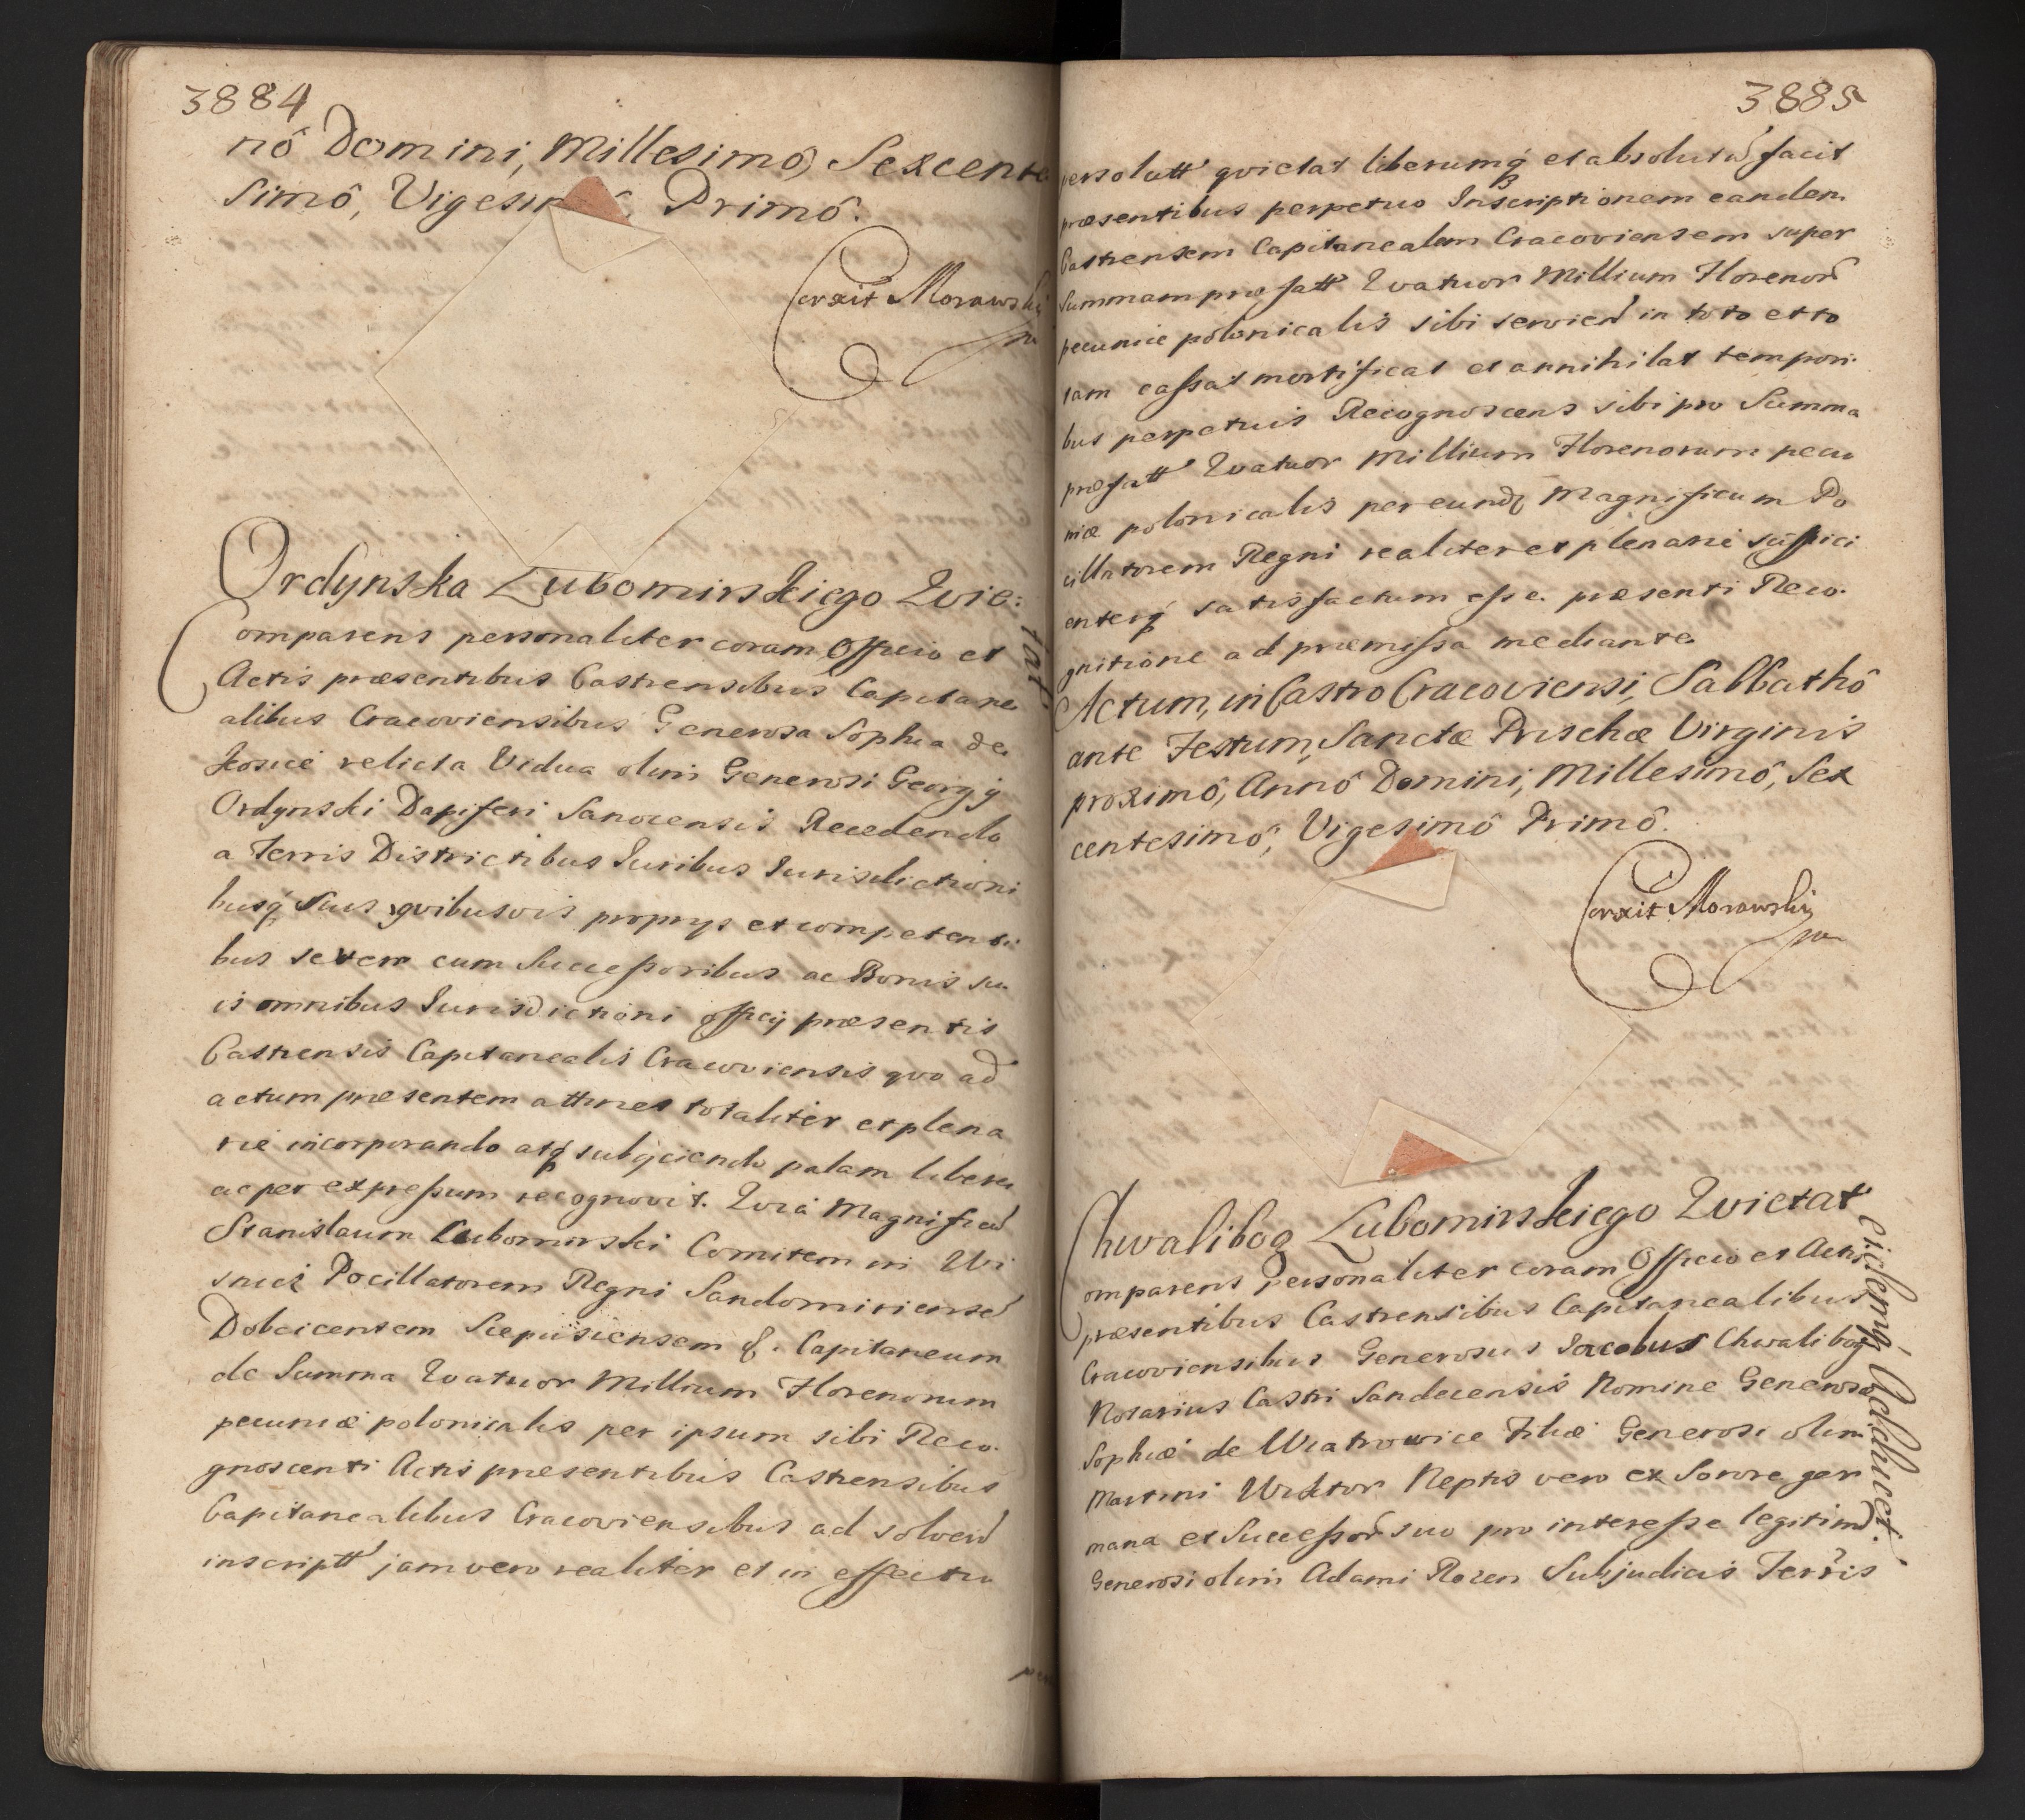 3884
nô Domini, Millesimô, Sexcente
simô, Vigesimô, Primô.
Corxit Morawskj
mp
Ordynska Lubomirskiego Qvie:
tat
Comparens personaliter coram Officio et
Actis præsentibus Castrensibus Capitane
alibus Cracoviensibus Generosa Sophia de
relicta Vidua olim Generosi Georgij
Ordynski Dapiferi Sanocensis Recedendo
a Terris Districtibus Iuribus Iurisdictioni
busq́ suis qvibusvis proprijs et competenti
bus se vero cum Successoribus ac Bonis su
is omnibus Iurisdictioni Officij præsentis
Castrensis Capitanealis Cracoviensis qvo ad
actum præsentem attinet totaliter et plena
rie incorporando atq́ subijciendo palam libere
ac per expressum recognovit. Qvia Magnificū
Stanislaum Lubomirski Comitem in Wi
snicz Pocillatorem Regni Sandomiriensē
Dobcicensem Scepusiensem &. Capitaneum
de Summa Qvatuor Millium Florenorum
pecuniæ polonicalis per ipsum sibi Reco-
gnoscenti Actis præsentibus Castrensibus
Capitanealibus Cracoviensibus ad solvend
inscriptt jam vero realiter et in effectu
per
3885
persolutt qvietat liberumq́ et absolutū facit
præsentibus perpetuo Inscriptionem eandem
Castrensem Capitanealem Cracoviensem super
Summam præfatt Qvatuor Millium Florenor
pecuniæ polonicalis sibi serviend in toto et to
tam cassat mortificat et annihilat tempori-
bus perpetuis Recognoscens sibi pro Summa
præfatt Qvatuor Millium Florenorum pecu
niæ polonicalis per eund Magnificum Po
cillatorem Regni realiter et plenarie suffici
enterq́ satisfactum esse præsenti Reco-
gnitione ad præmissa mediante
Actum, in Castro Cracoviensi, Sabbathô
ante Festum, Sanctæ Prischæ Virginis
proximô, Annô Domini, Millesimô, Sex
centesimô, Vigesimô Primô.
Corxit Morawskj
mp
Chwalibog Lubomirskiego Qvietat
eidemq́ Adducet
Comparens personaliter coram Officio et Actis
præsentibus Castrensibus Capitanealibus
Cracoviensibus Generosus Jacobus Chwalibog
Notarius Castri Sandecensis Nomine Generosæ
Sophiæ de Wiatrowice Filiæ Generosi olim
Martini Wiktor Neptis vero ex Sorore ger
mana et Successor suo pro interesse legitimæ
Generosi olim Adami Rozen Subjudicis Terris